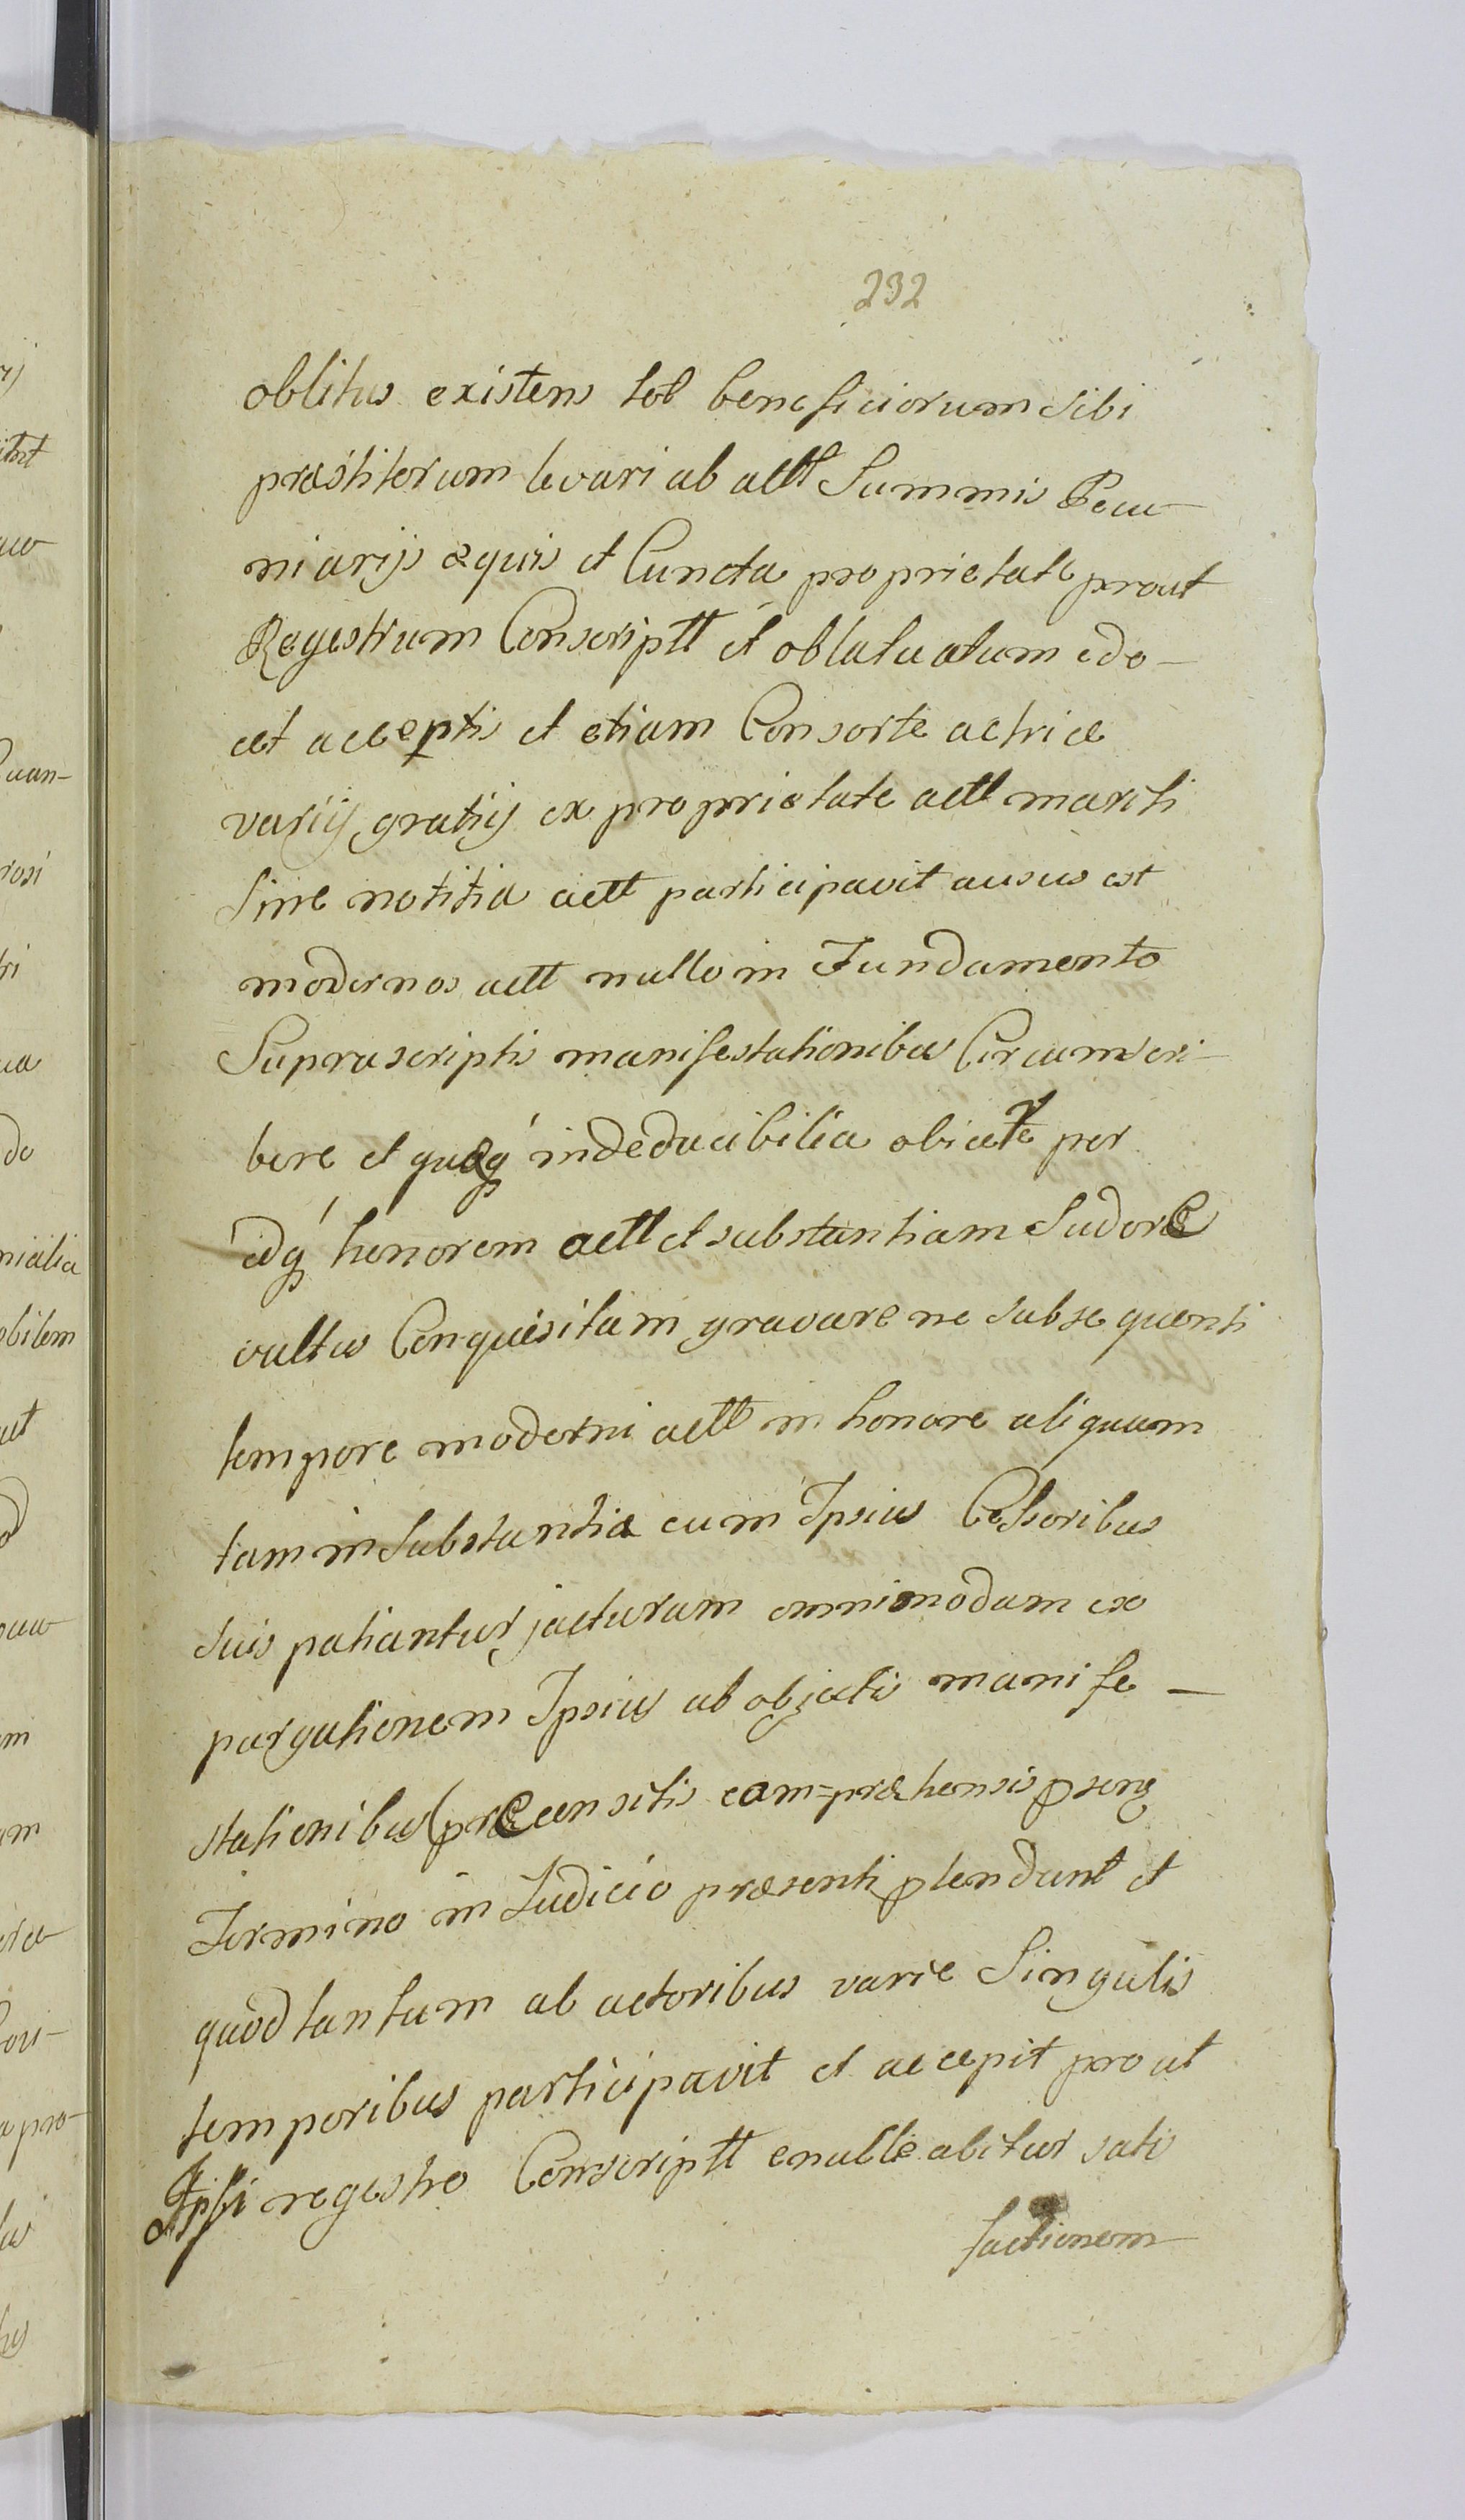 232
oblitus existens tot beneficiorum sibi
præstitorum levari ab actt Summis Pecu-
niarijs æquis et Cuncta proprietate prout
Regestrum Conscriptt et oblatuatum edo-
cet acceptis et etiam Consorte actrice
varijs gratijs ex proprietate actt mariti
Sine notitia actt participavit ausus est
modernos actt nullo in Fundamento
Supra scriptis manifestationibus Circumscri-
bere et quæq indeducibilia obicere per
idq honorem actt et substantiam Sudore
vultus Conquisitam gravare ne subsequenti
tempore moderni actt in honore aliquam
tam in Substantia cum Ipsius Cessoribus
suis patiantur jacturam omnimodam ex
purgationem Ipsius ab objectis manife-
stationibus præcensitis com=præhensis
Termino in Iudicio præsenti ptendunt et
quod tantum ab actoribus varie Singulis
temporibus participavit et accepit pro ut
Ipsi regestro Conscriptt satis
factionem
ij
Quan-
rosi
nialia
obilem
ori-
a pro-